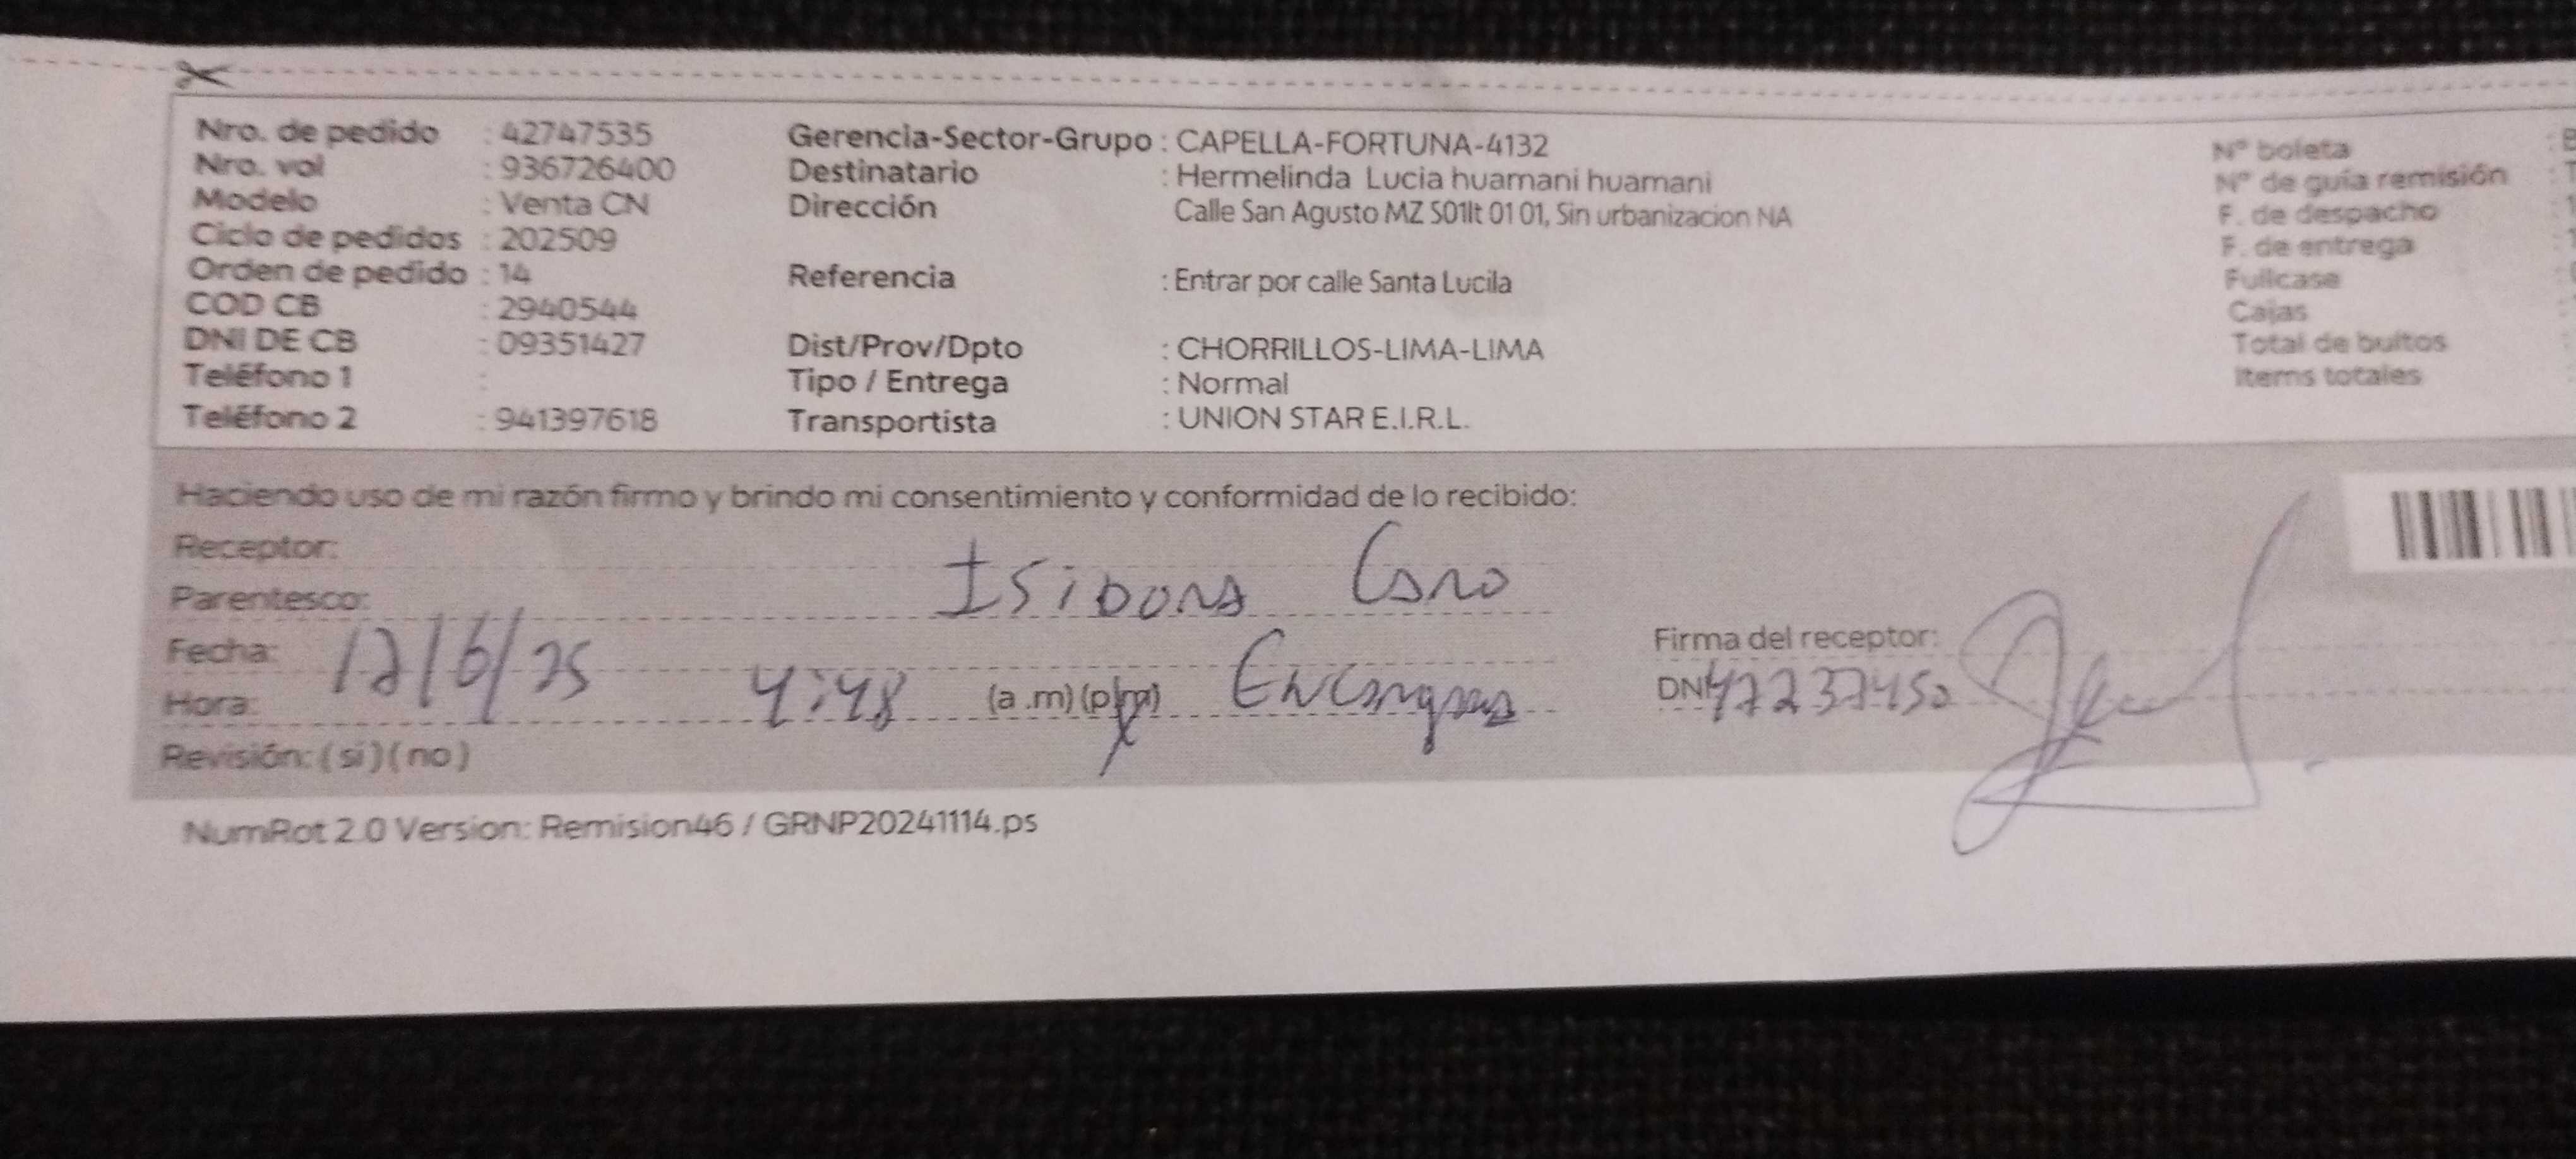 Nro. de pedido : 42747535
Nro. val : 936726400
Modelo : Venta CN
Ciclo de pedidos : 202509
Orden de pedido : 14
COD CB : 2940544
DNI DE CB : 09351427
Teléfono 1 :
Teléfono 2 : 941397618
Gerencia-Sector-Grupo : CAPELLA-FORTUNA-4132
Destinatario : Hermelinda Lucia huamani huamani
Dirección Calle San Agusto MZ S01lt 01 01, Sin urbanizacion NA
Referencia : Entrar por calle Santa Lucila
Dist/Prov/Dpto : CHORRILLOS-LIMA-LIMA
Tipo / Entrega : Normal
Transportista : UNION STAR E.I.R.L.
N° boleta :
N° de guía remisión :
F. de despacho :
F. de entrega :
Fullcase :
Cajas
Total de bultos
Items totales
Haciendo uso de mi razón firmo y brindo mi consentimiento y conformidad de lo recibido:
Receptor:
Isidora Caro
Parentesco:
Fecha: 12/6/25
Hora: 4:48 (a .m) (p.m)
Firma del receptor:
DNI 47237450
Revisión: ( sí ) ( no )
NumRot 2.0 Version: Remision46 / GRNP20241114.ps